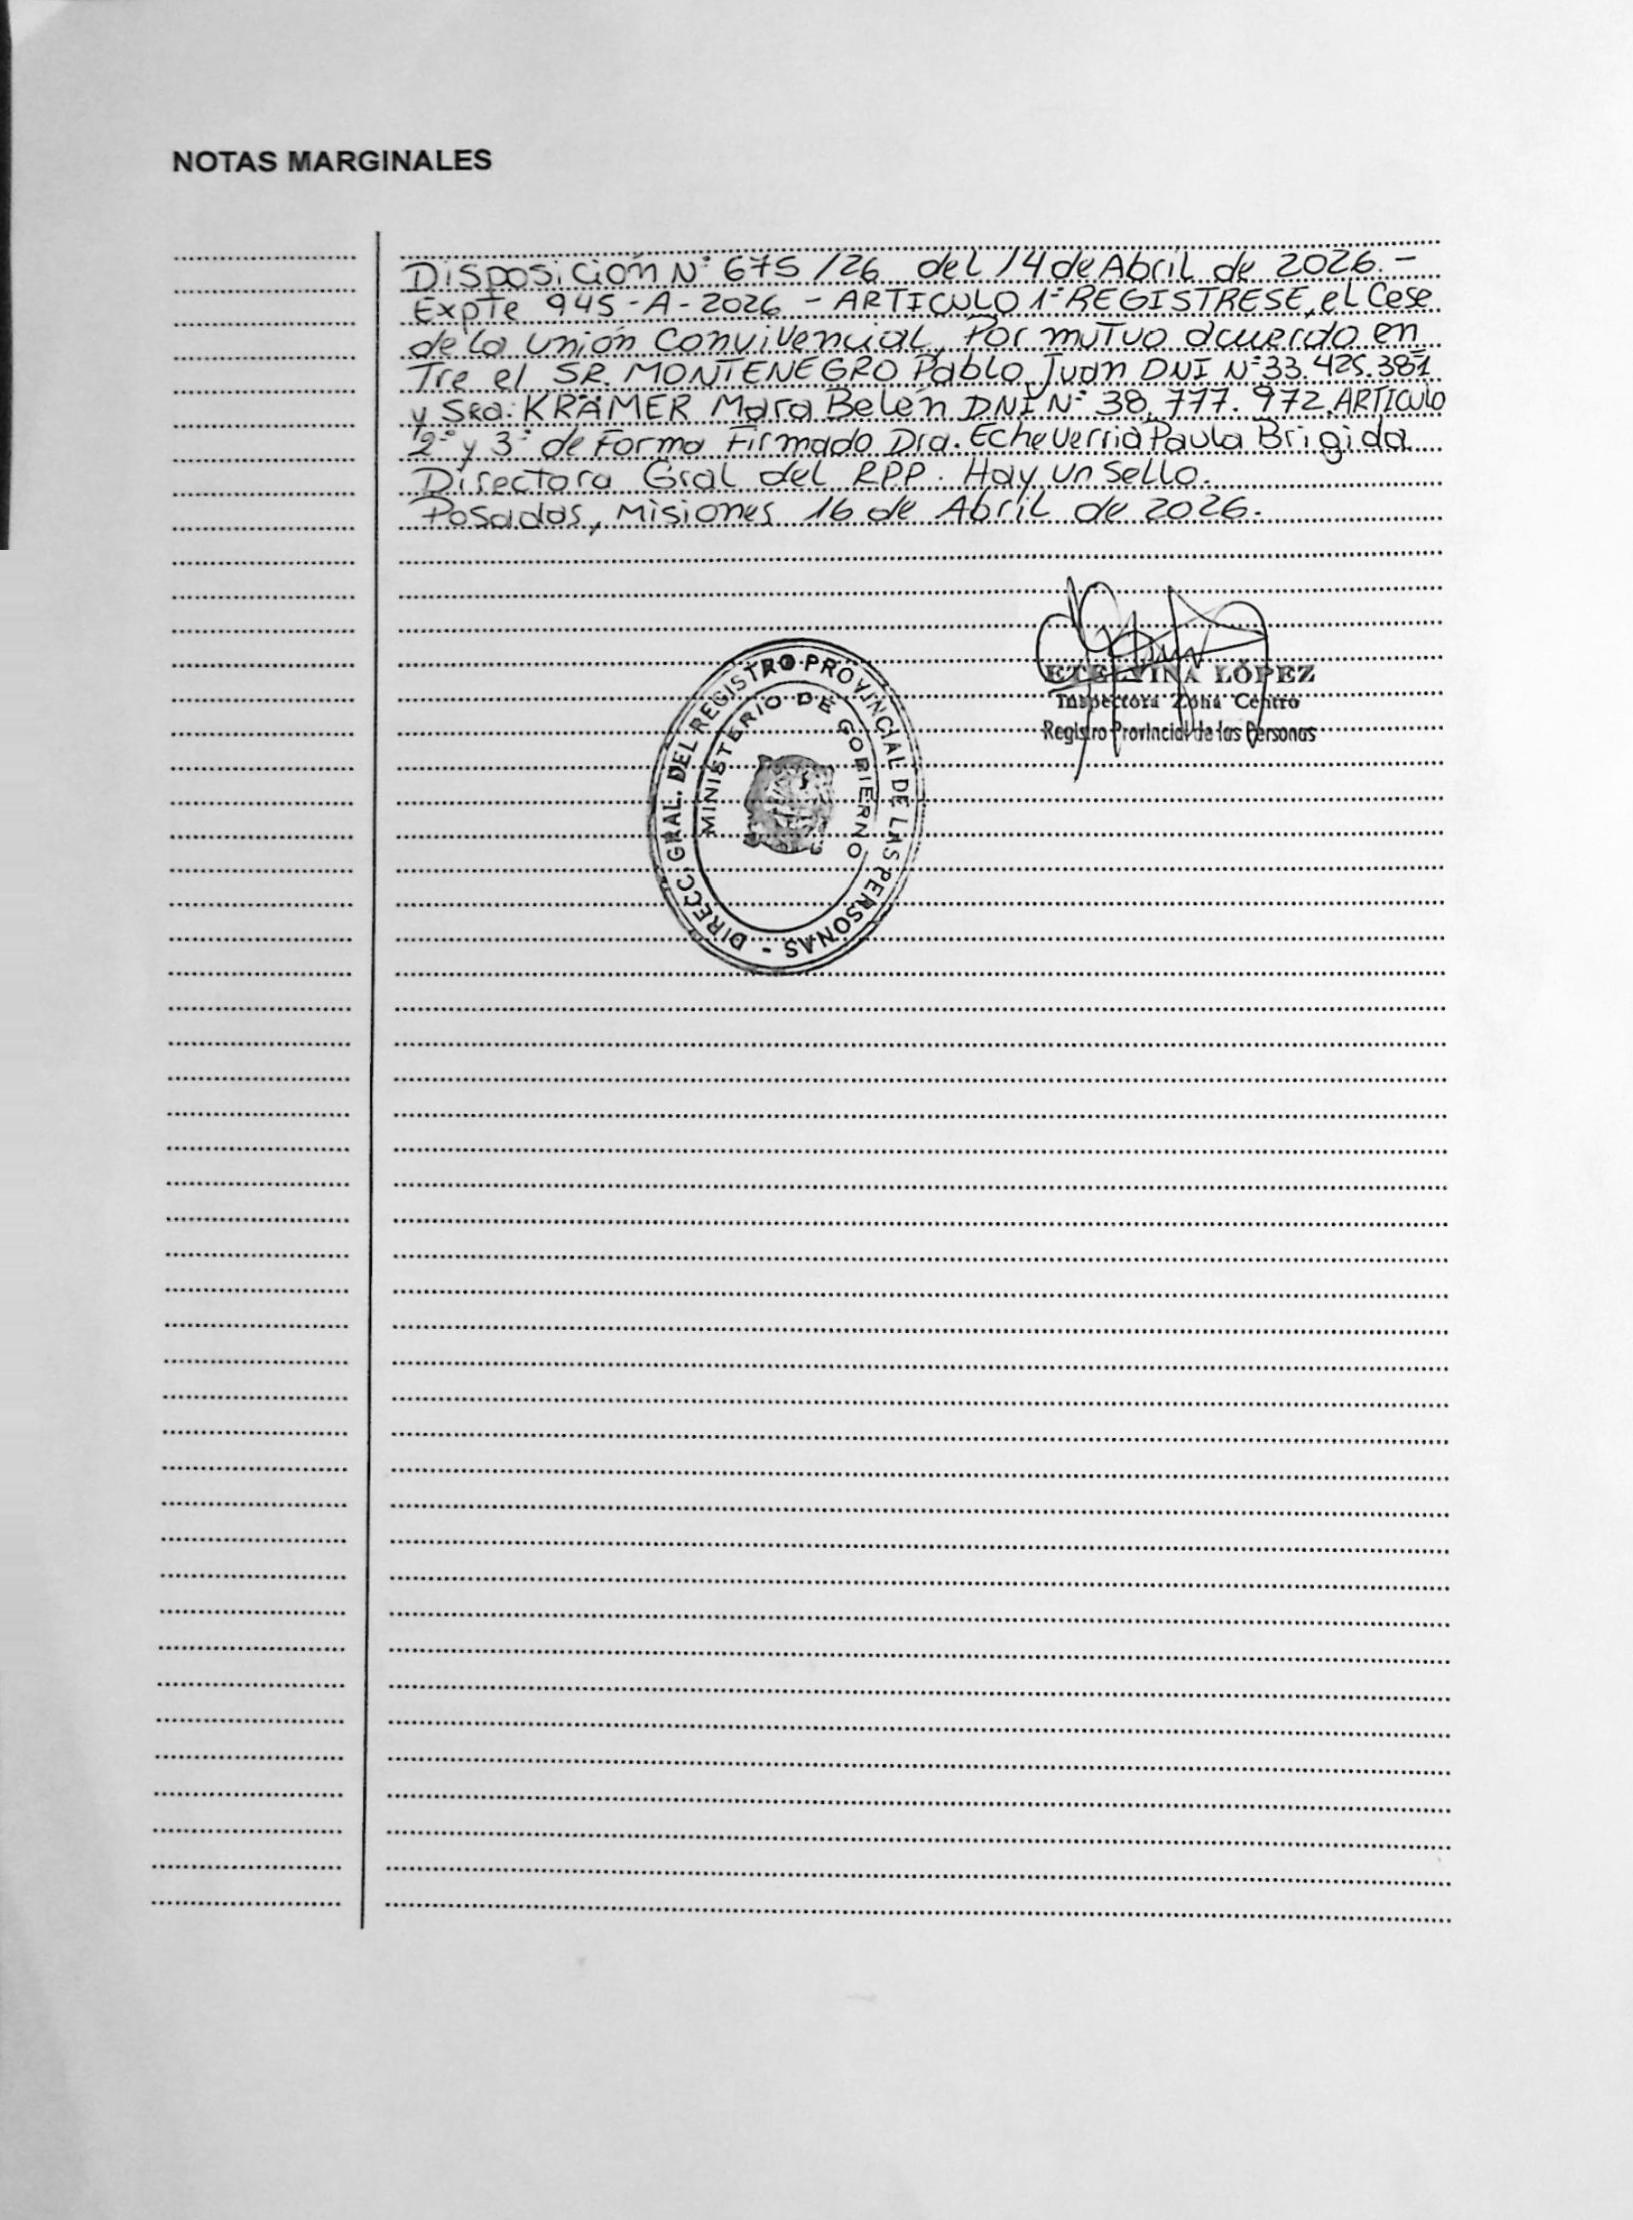 NOTAS MARGINALES
Disposición N° 675/26 del 14 de Abril de 2026.-
Expte 945-A-2026 - ARTICULO 1° REGISTRESE, el Cese
de la Unión Convivencial, Por mutuo acuerdo en
Tre el SR. MONTENEGRO Pablo Juan DNI N° 33.425.381
y Sra: KRÄMER Mara Belén DNI N° 38.777.972. ARTICULO
2° y 3° de Forma Firmado Dra. Echeverria Paula Brigida
Directora Gral del RPP. Hay un Sello.
Posadas, Misiones 16 de Abril de 2026.
ETELVINA LÓPEZ
Inspectora Zona Centro
Registro Provincial de las Personas
DIRECC. GRAL. DEL REGISTRO PROVINCIAL DE LAS PERSONAS -
MINISTERIO DE GOBIERNO